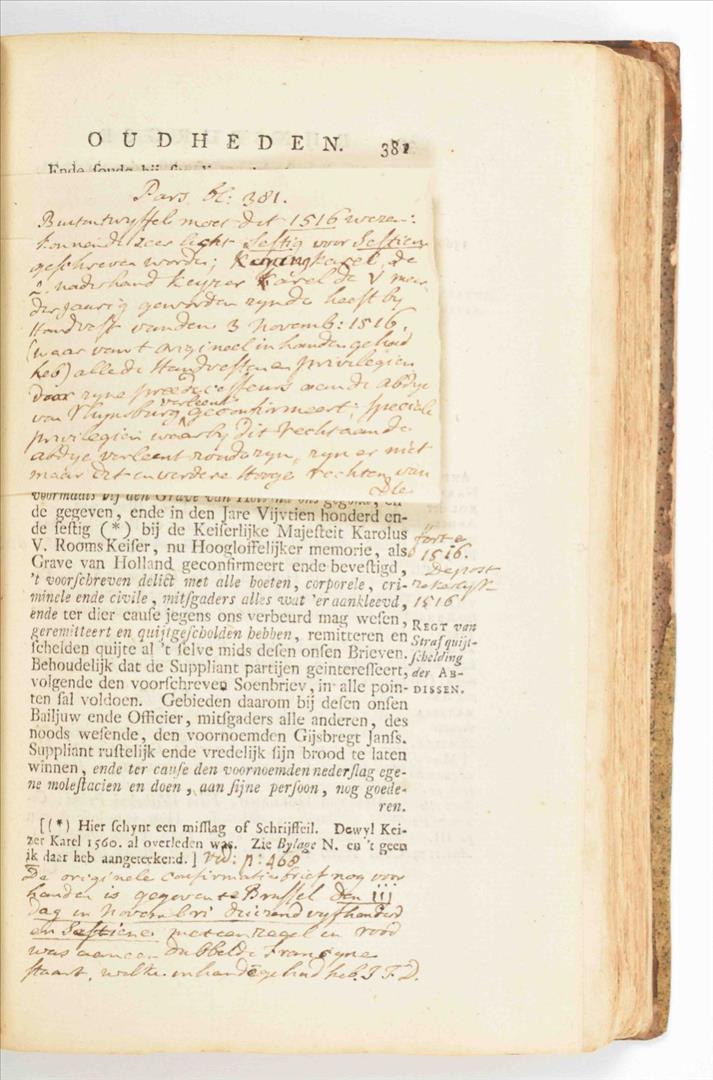 OUDHEDEN. 381
Ende
Pars. bl: 381.
Buitentwyffel moet dit 1516 weze:
konnende zeer licht Sestig voor Sestien
geschreven worden; Koning Karel, de
naderhand Keyzer Karel de V meer
derjaarig geworden zynde heeft by
Handvest vanden 3 Novemb: 1516.
(waar van 't origineel in handen gehad
heb) alle de Handvesten en privilegien
door zyne predecesseurs aen de abdye
van Rhynsburg verleent geconfirmeert; speciale
privilegien waarby dit recht aan de
abdye verleent zoude zyn, zyn er niet
maar dit en verdere Hooge rechten van
Die
voormaals bij den Grave van
de gegeven, ende in den Jare Vijvtien honderd en-
de sestig (*) bij de Keiserlijke Majesteit Karolus
V. Rooms Keiser, nu Hoogloffelijker memorie, als
Grave van Holland geconfirmeert ende bevestigd,
't voorschreven delict met alle boeten, corporele, cri-
minele ende civile, mitsgaders alles wat 'er aankleevd,
ende ter dier cause jegens ons verbeurd mag wesen,
geremitteert en quijtgescholden hebben, remitteren en
schelden quijte al 't selve mids desen onsen Brieven.
Behoudelijk dat de Suppliant partijen geinteresseert,
volgende den voorschreven Soenbriev, in alle poin-
ten sal voldoen. Gebieden daarom bij desen onsen
Bailjuw ende Officier, mitsgaders alle anderen, des
noods wesende, den voornoemden Gijsbregt Jansz.
Suppliant rustelijk ende vredelijk sijn brood te laten
winnen, ende ter cause den voornoemden nederslag ege-
ne molestacien en doen, aan sijne persoon, nog goede-
ren.
forte
1516.
1516
REGT van
Straf quijt-
schelding
der AB-
DISSEN.
[(*) Hier schynt een misslag of Schrijffeil. Dewyl Kei-
zer Karel 1560. al overleden was. Zie Bylage N. en 't geen
ik daar heb aangeteekend.] vid: p: 468
De originele confirmatie brief nog voor
handen is gegeven te Brussel den iij
dag in Novembri duizend vyfhonderd
en Sestiene met een zegel in rood
was aan een dubbelde Francyne
staart, welke in hande gehad heb. J. F. D.